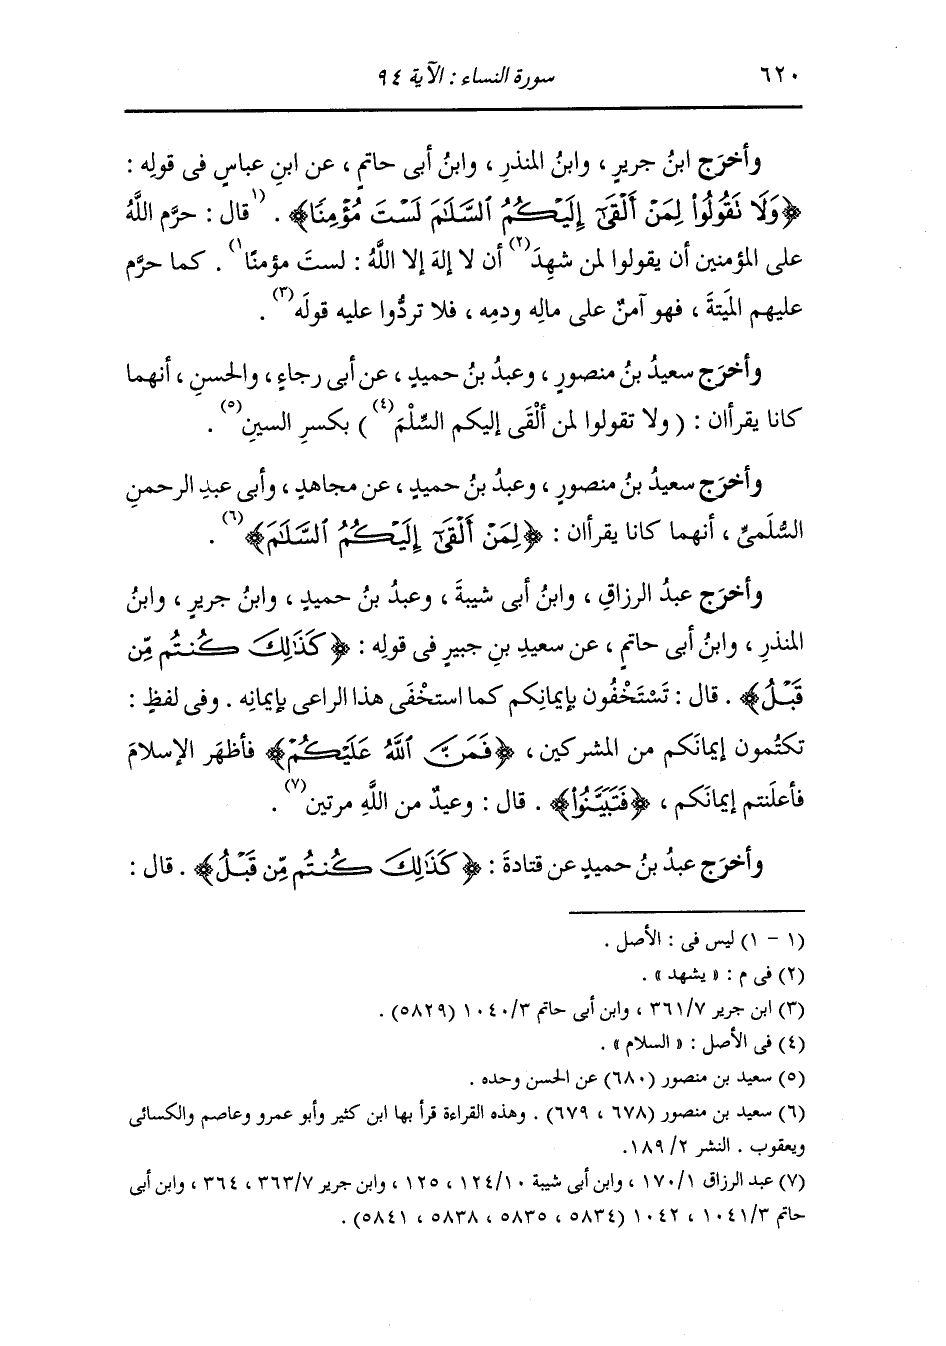 ٦٢٠ سورة النساء : الآية ٩٤
وأخرَج ابنُ جريرٍ ، وابنُ المنذرِ ، وابنُ أبى حاتمٍ ، عن ابنِ عباسٍ فى قولِه :
﴿وَلَا نَقُولُواْ لِمَنْ أَلْقَىٰٓ إِلَيْكُمُ ٱلسَّلَٰمَ لَسْتَ مُؤْمِنًا﴾ . (١قال : حرَّم اللَّهُ
على المؤمنين أن يقولوا لمن شهِدَ(٢) أن لا إلهَ إلا اللَّهُ : لستَ مؤمنًا١) . كما حرَّم
عليهم الميَتةَ ، فهو آمنٌ على مالِه ودمِه ، فلا تردُّوا عليه قولَه(٣) .
وأخرَج سعيدُ بنُ منصورٍ ، وعبدُ بنُ حميدٍ ، عن أبى رجاءٍ ، والحسنِ ، أنهما
كانا يقرأان : ( ولا تقولوا لمن ألْقَى إليكم السِّلْمَ(٤) ) بكسرِ السينِ(٥) .
وأخرَج سعيدُ بنُ منصورٍ ، وعبدُ بنُ حميدٍ ، عن مجاهدٍ ، وأبى عبدِ الرحمنِ
السُّلَمىِّ ، أنهما كانا يقرأان : ﴿لِمَنْ أَلْقَىٰٓ إِلَيْكُمُ ٱلسَّلَٰمَ﴾(٦) .
وأخرَج عبدُ الرزاقِ ، وابنُ أبى شيبةَ ، وعبدُ بنُ حميدٍ ، وابنُ جريرٍ ، وابنُ
المنذرِ ، وابنُ أبى حاتمٍ ، عن سعيدِ بنِ جبيرٍ فى قولِه : ﴿كَذَٰلِكَ كُنتُم مِّن
قَبْلُ﴾ . قال : تَسْتَخْفُون بإيمانِكم كما استخْفَى هذا الراعى بإيمانِه . وفى لفظٍ :
تكتُمون إيمانَكم من المشركين ، ﴿فَمَنَّ ٱللَّهُ عَلَيْكُمْ﴾ فأظهَر الإسلامَ
فأعلَنتم إيمانَكم ، ﴿فَتَبَيَّنُوٓاْ﴾ . قال : وعيدٌ من اللَّهِ مرتين(٧) .
وأخرَج عبدُ بنُ حميدٍ عن قتادةَ : ﴿كَذَٰلِكَ كُنتُم مِّن قَبْلُ﴾ . قال :
(١ – ١) ليس فى : الأصل .
(٢) فى م : « يشهد » .
(٣) ابن جرير ٣٦١/٧ ، وابن أبى حاتم ١٠٤٠/٣ (٥٨٢٩) .
(٤) فى الأصل : « السلام » .
(٥) سعيد بن منصور (٦٨٠) عن الحسن وحده .
(٦) سعيد بن منصور (٦٧٨ ، ٦٧٩) . وهذه القراءة قرأ بها ابن كثير وأبو عمرو وعاصم والكسائى
ويعقوب . النشر ١٨٩/٢.
(٧) عبد الرزاق ١٧٠/١ ، وابن أبى شيبة ١٢٤/١٠ ، ١٢٥ ، وابن جرير ٣٦٣/٧ ، ٣٦٤ ، وابن أبى
حاتم ١٠٤١/٣ ، ١٠٤٢ (٥٨٣٤ ، ٥٨٣٥ ، ٥٨٣٨ ، ٥٨٤١) .